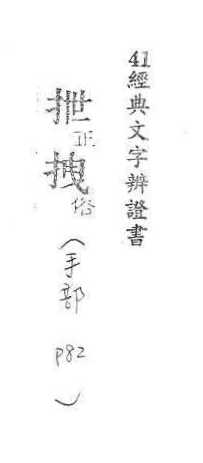 41經典文字辨證書
抴正拽俗(手部 P82)